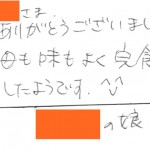 さま
ありがとうございまし
も味もよく完食
したようです。^^
の娘